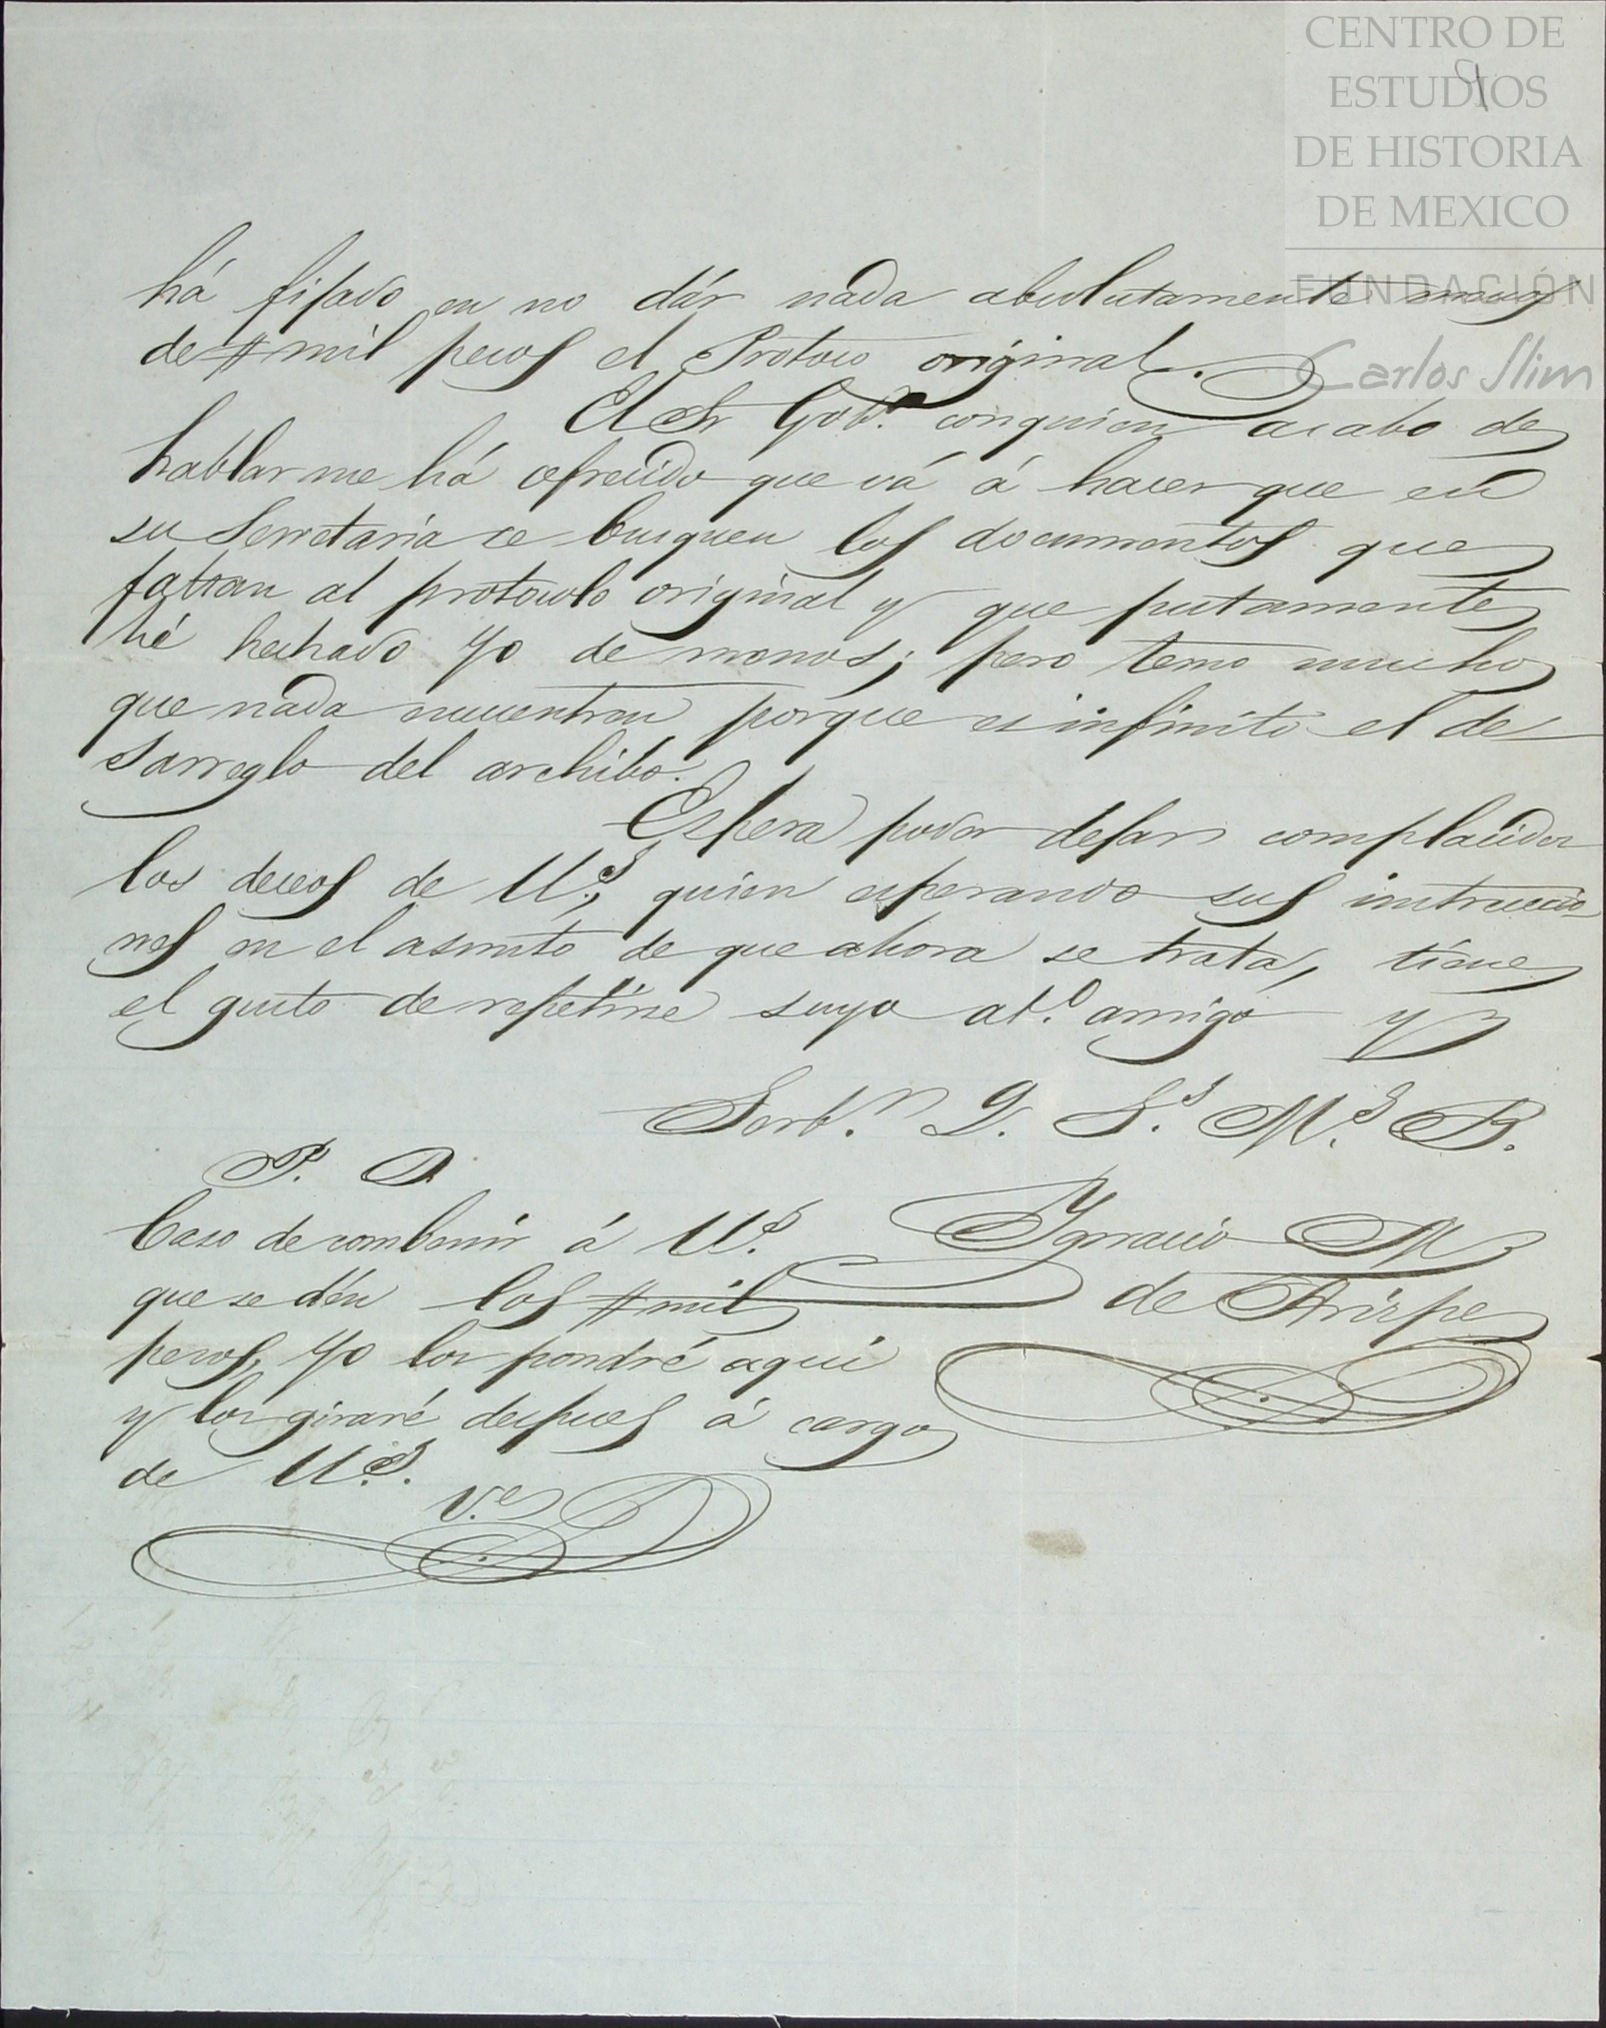 CENTRO DE
ESTUDIOS
DE HISTORIA
DE MEXICO
FUNDACIÓN
Carlos Slim
há fijado en no dár nada absolutamente menos
de # mil pesos el Protoco original.
El Sr Gobr. con quien acabo de
hablar me há ofrecido que vá á hacer que en
su Secretaria se busquen los documentos que
faltan al protocolo original y que justamente
hé hechado yo de menos; pero temo mucho
que nada encuentren porque es infinito el de-
sarreglo del archibo.
Espera poder dejar complacidos
los deceos de Ud., quien esperando sus instruccio
nes en el asunto de que ahora se trata, tiene
el gusto de repetirse suyo ato. amigo y
Serbr. Q. Ss. Ms. B.
P. D.
Ygnacio M
de Arizpe
Caso de combenir á Ud.
que se dén los # mil
pesos, yo los pondré aqui
y los giraré despues á cargo
de Ud.
Ve